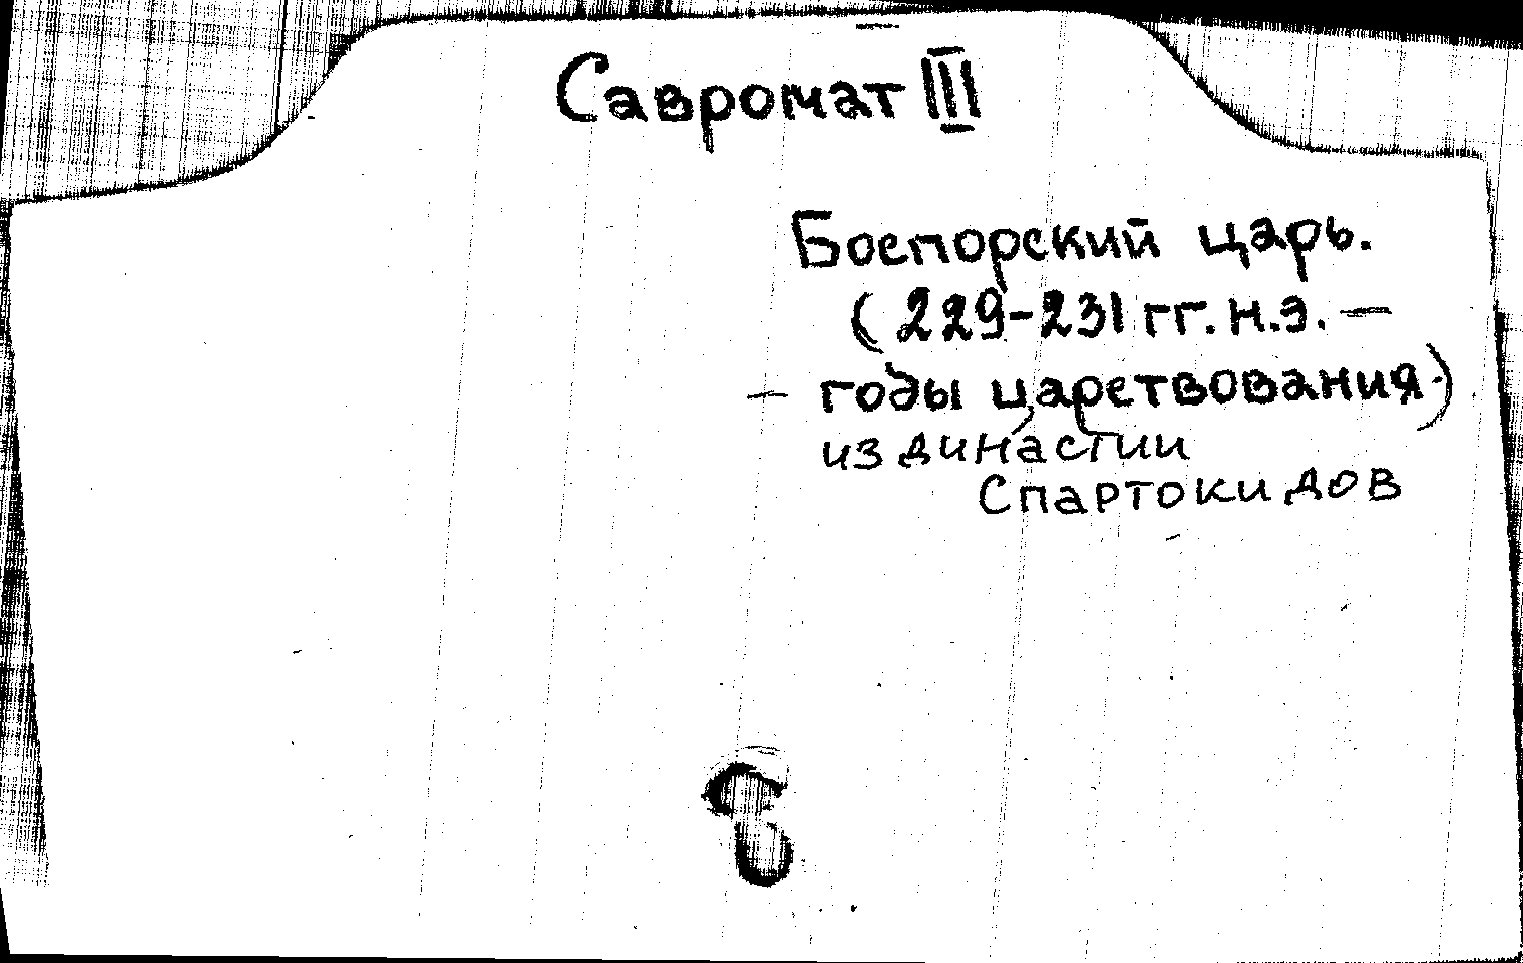 Савромат III
Боспорский царь.
(229-231 гг. н.э. —
— годы царствования)
из династии
Спартокидов